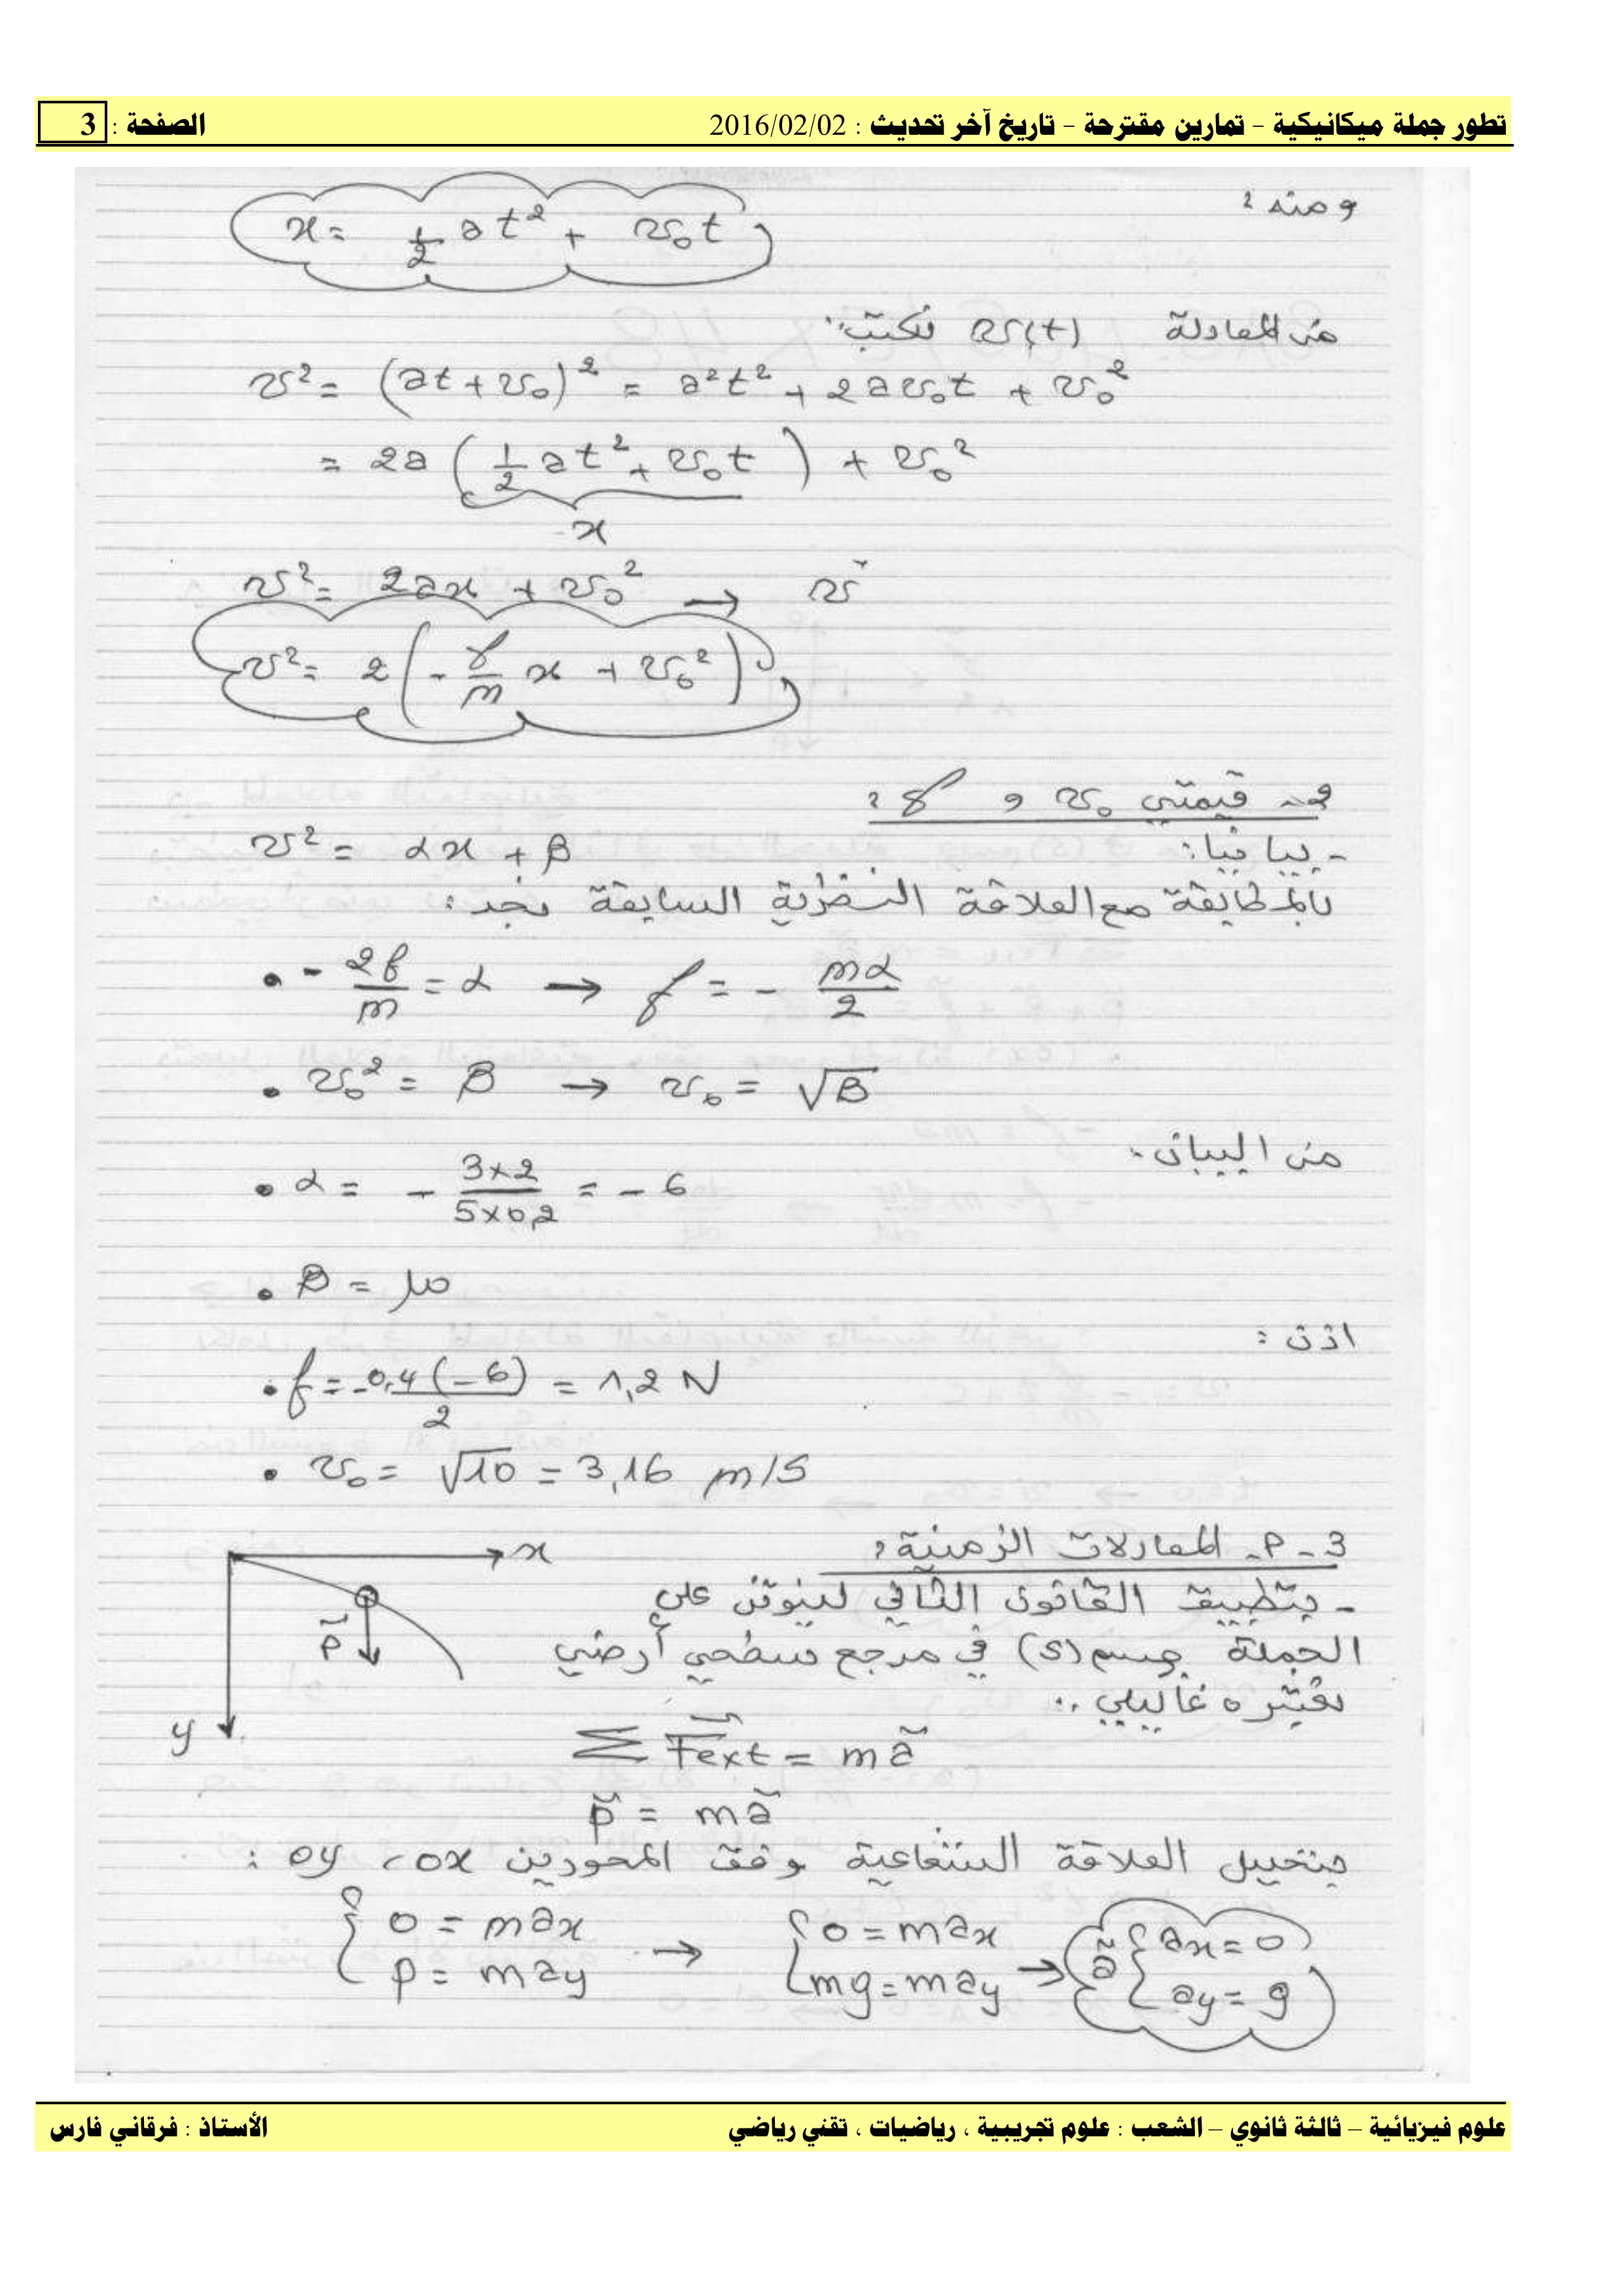 تطور جملة ميكانيكية - تمارين مقترحة - تاريخ آخر تحديث : 2016/02/02 الصفحة : 3
و منه :
x = 1/2 a t² + v₀t
من المعادلة v(t) نكتب :
v² = (at + v₀)² = a²t² + 2av₀t + v₀²
= 2a (1/2 at² + v₀t) + v₀²
x
v² = 2ax + v₀² → v
v² = 2(- f/m x + v₀²)
2- قيمتي v₀ و f :
- بيانيا : v² = αx + β
بالمطابقة مع العلاقة النظرية السابقة نجد :
• - 2f/m = α → f = - mα/2
• v₀² = β → v₀ = √β
من البيان :
• α = - 3×2/5×0,2 = - 6
• β = 10
اذن :
• f = -0,4(-6)/2 = 1,2 N
• v₀ = √10 = 3,16 m/s
3 - أ - المعادلات الزمنية :
x
y
P
- بتطبيق القانون الثاني لنيوتن على
الجملة جسم (S) في مرجع سطحي أرضي
نعتبره غاليلي :
Σ Fext = ma
P = ma
بتحليل العلاقة الشعاعية وفق المحورين ox ، oy :
{ 0 = max → { 0 = max → a { ax = 0
{ P = may { mg = may { ay = g
علوم فيزيائية – ثالثة ثانوي – الشعب : علوم تجريبية ، رياضيات ، تقني رياضي الأستاذ : فرقاني فارس